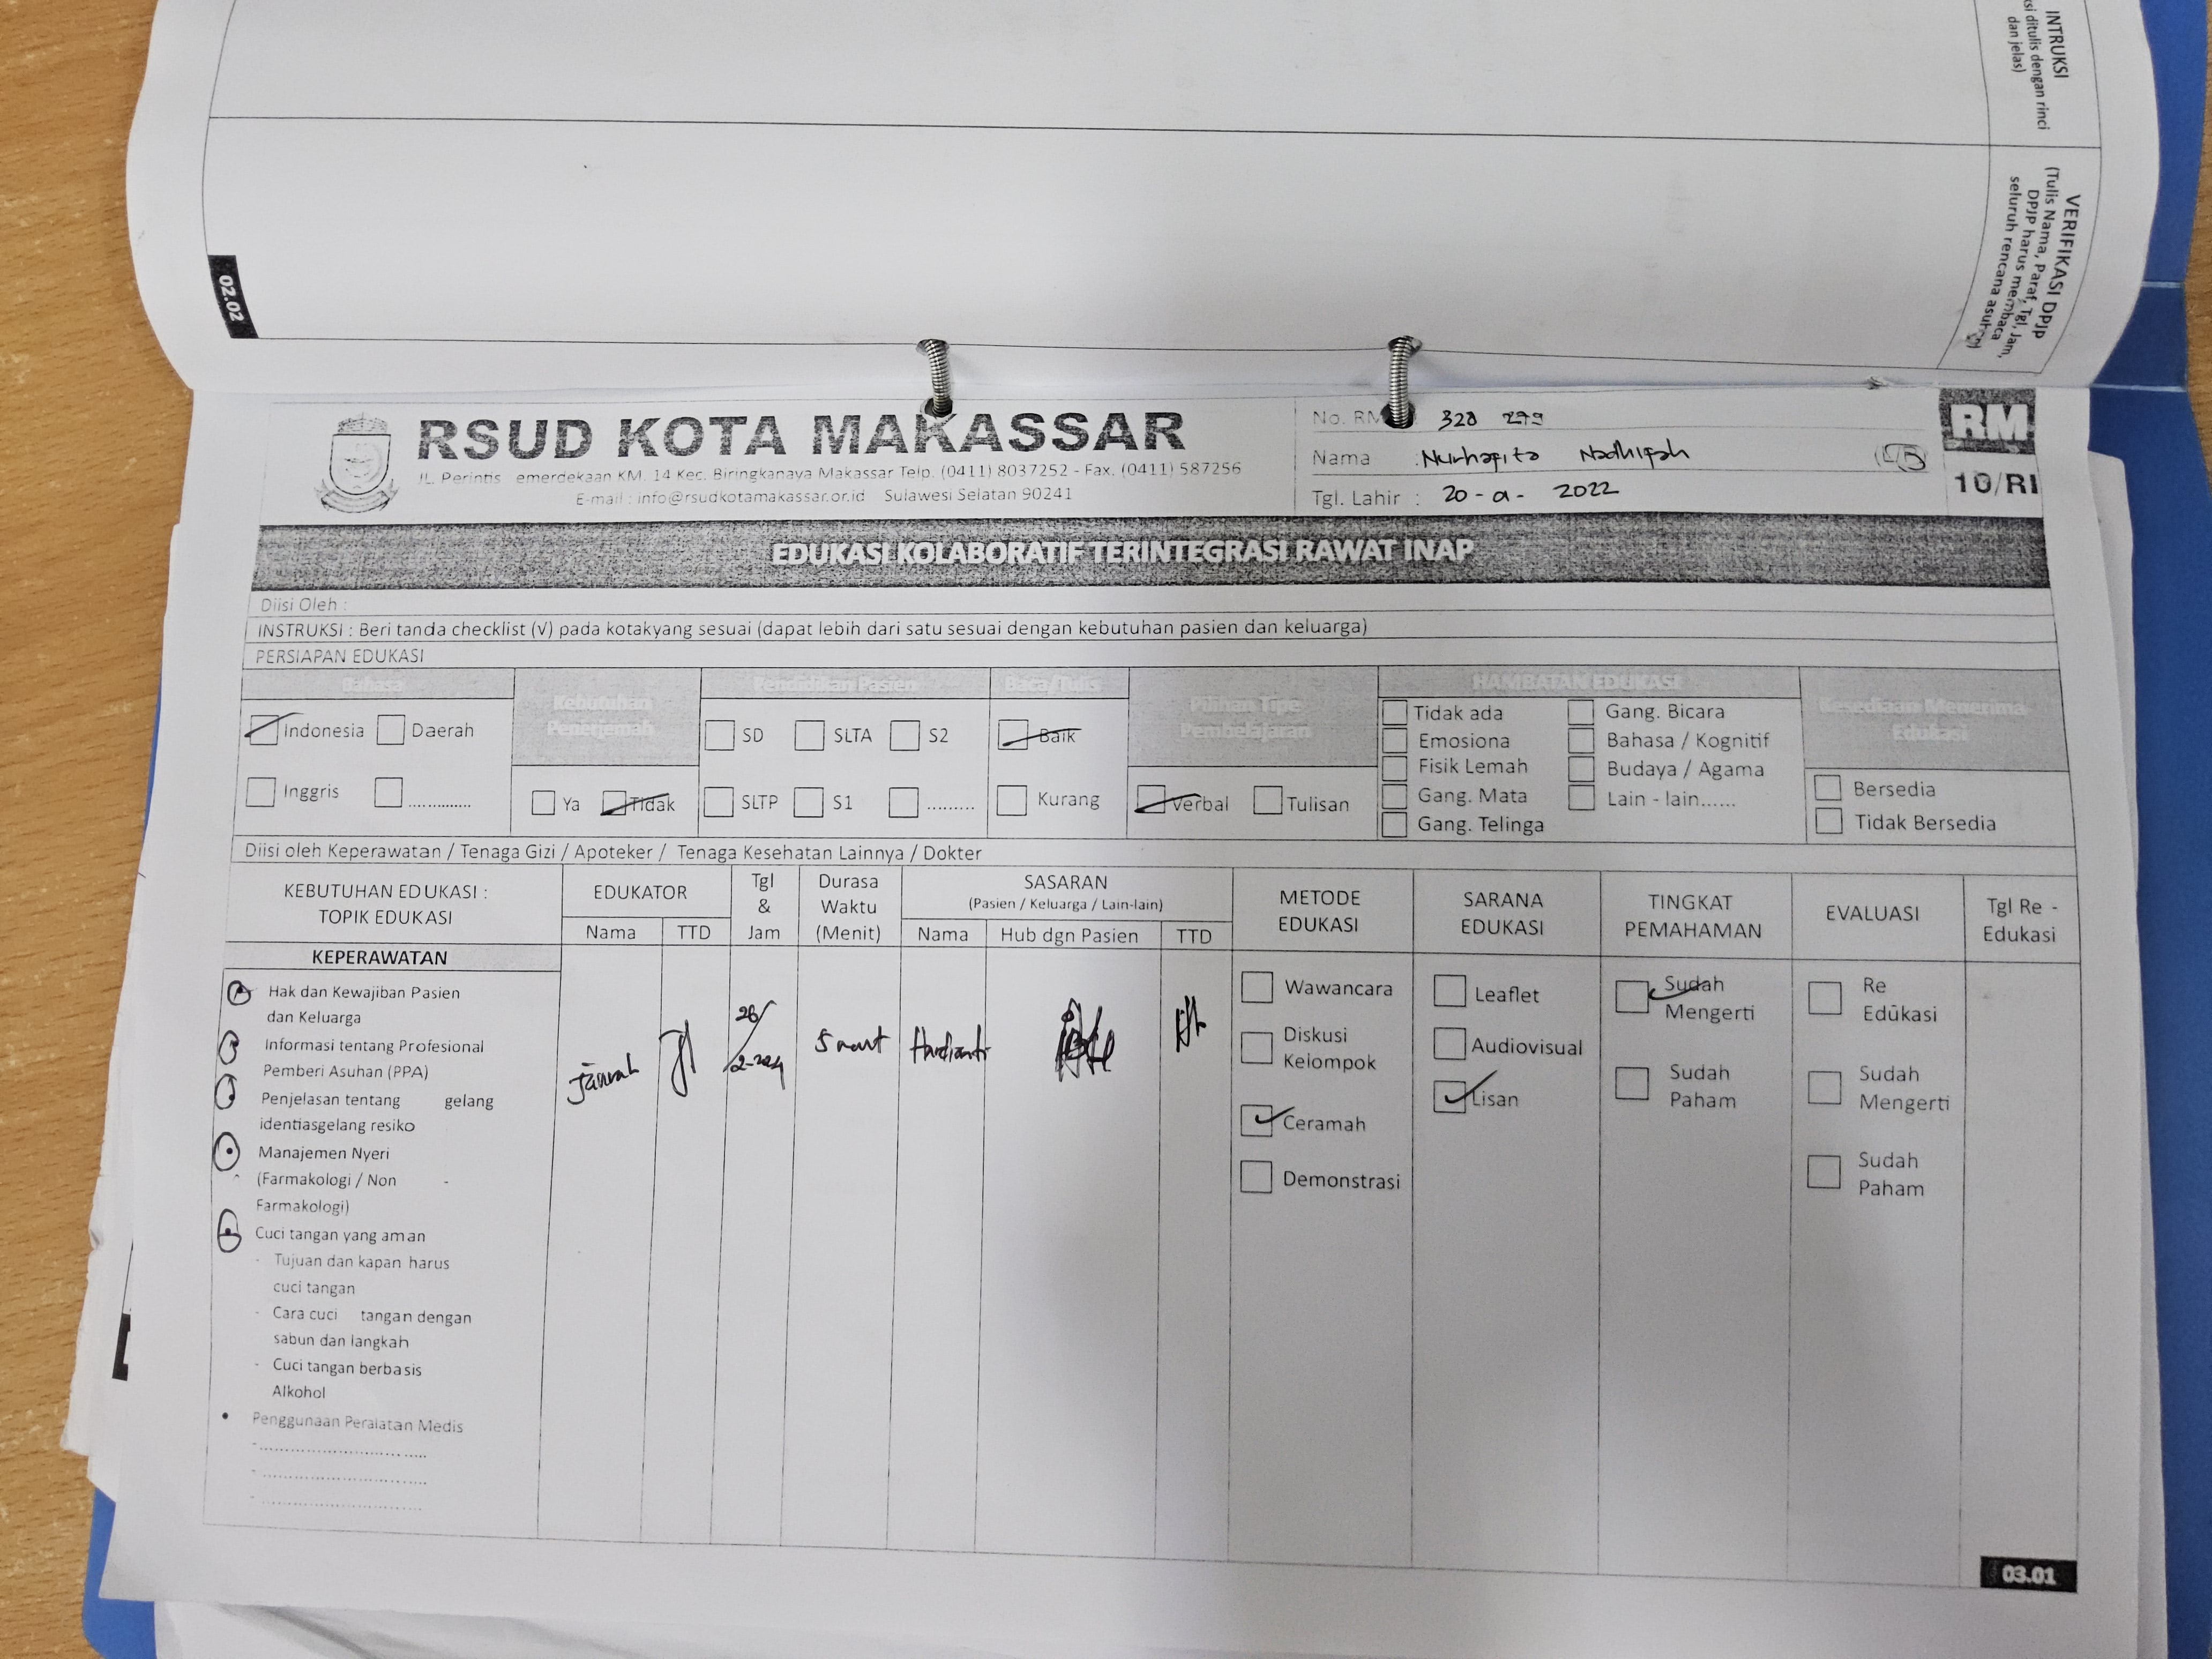 INTRUKSI
si ditulis dengan rinci
dan jelas)
VERIFIKASI DPJP
(Tulis Nama, Paraf, Tgl, Jam,
DPJP harus membaca
seluruh rencana asuhan)
02.02
RSUD KOTA MAKASSAR
JL. Perintis emerdekaan KM. 14 Kec. Biringkanaya Makassar Telp. (0411) 8037252 - Fax. (0411) 587256
E-mail : info@rsudkotamakassar.or.id Sulawesi Selatan 90241
No. RM 328 279
Nama :
Tgl. Lahir : 20 - 01 - 2022
RM
10/RI
EDUKASI KOLABORATIF TERINTEGRASI RAWAT INAP
Diisi Oleh :
INSTRUKSI : Beri tanda checklist (√) pada kotakyang sesuai (dapat lebih dari satu sesuai dengan kebutuhan pasien dan keluarga)
PERSIAPAN EDUKASI
Bahasa
Indonesia Daerah
Inggris ..............
Kebutuhan
Penerjemah
Ya Tidak
Pendidikan Pasien
SD SLTA S2
SLTP S1 .........
Baca/Tulis
Baik
Kurang
Pilihan Tipe
Pembelajaran
Verbal Tulisan
HAMBATAN EDUKASI
Tidak ada Gang. Bicara
Emosiona Bahasa / Kognitif
Fisik Lemah Budaya / Agama
Gang. Mata Lain - lain......
Gang. Telinga
Kesediaan Menerima
Edukasi
Bersedia
Tidak Bersedia
Diisi oleh Keperawatan / Tenaga Gizi / Apoteker / Tenaga Kesehatan Lainnya / Dokter
KEBUTUHAN EDUKASI :
TOPIK EDUKASI
EDUKATOR
Nama TTD
Tgl
&
Jam
Durasa
Waktu
(Menit)
SASARAN
(Pasien / Keluarga / Lain-lain)
Nama Hub dgn Pasien TTD
METODE
EDUKASI
SARANA
EDUKASI
TINGKAT
PEMAHAMAN
EVALUASI
Tgl Re -
Edukasi
KEPERAWATAN
Hak dan Kewajiban Pasien
dan Keluarga
Informasi tentang Profesional
Pemberi Asuhan (PPA)
Penjelasan tentang gelang
identiasgelang resiko
Manajemen Nyeri
(Farmakologi / Non -
Farmakologi)
Cuci tangan yang aman
- Tujuan dan kapan harus
cuci tangan
- Cara cuci tangan dengan
sabun dan langkah
- Cuci tangan berbasis
Alkohol
• Penggunaan Peralatan Medis
Jannah
26/
2-2024
5 menit
Hardianti
Wawancara
Diskusi
Kelompok
Ceramah
Demonstrasi
Leaflet
Audiovisual
Lisan
Sudah
Mengerti
Sudah
Paham
Re
Edukasi
Sudah
Mengerti
Sudah
Paham
03.01